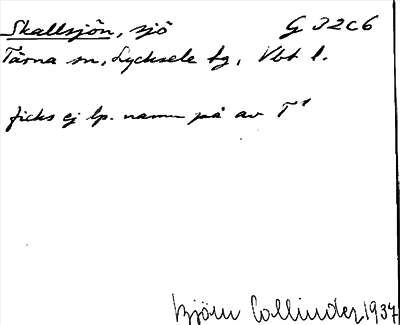 Skallsjön, sjö G 32c6
Tärna sn, Lycksele tg, Vbt l.
ficks ej lp. namn på av T¹
Björn Collinder 1937